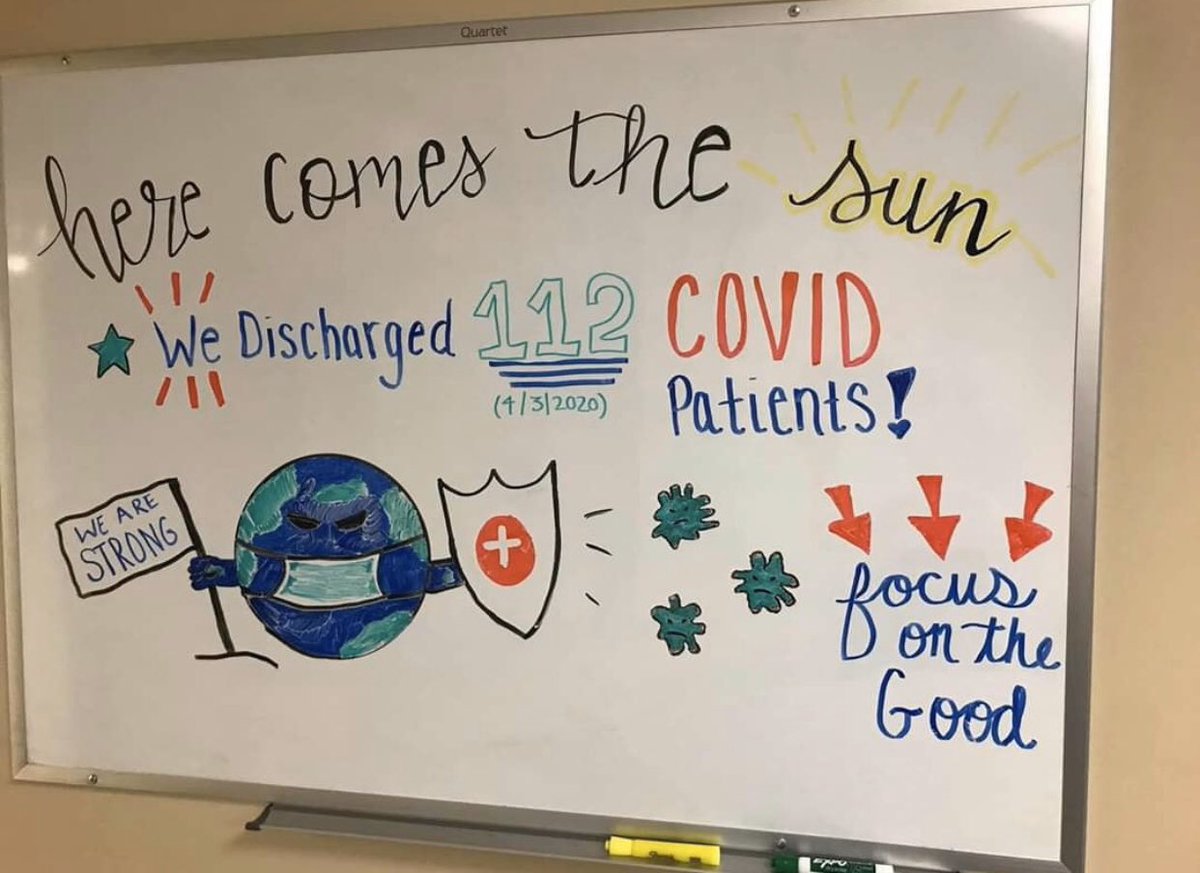 Quartet
here comes the sun
We Discharged 112 COVID
(4/3/2020)
Patients!
WE ARE
STRONG
focus
on the
Good
expo